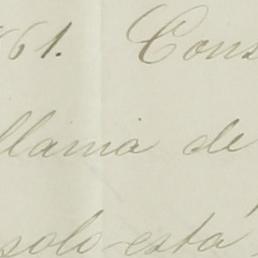 61. Cons
llama de
solo está